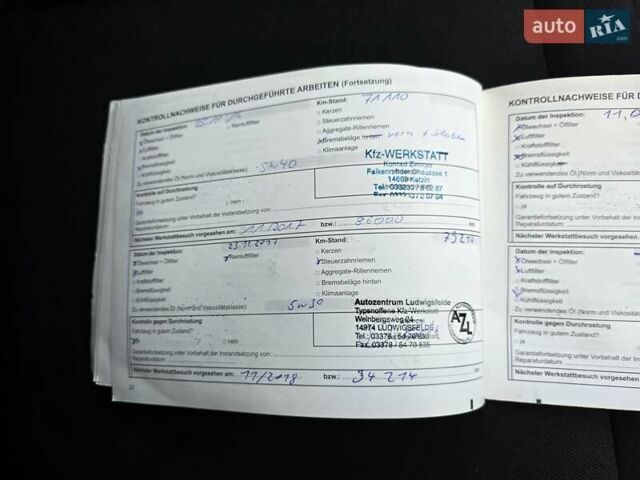 auto RIA.com
KONTROLLNACHWEISE FÜR DURCHGEFÜHRTE ARBEITEN (Fortsetzung)
Datum der Inspektion:
Km-Stand: 71110
Ölwechsel + Ölfilter
Reinluftfilter
Kerzen
Luftfilter
Steuerzahnriemen
Kraftstofffilter
Aggregate-Rillenriemen
Bremsflüssigkeit
Bremsbeläge hinten vorn +
Kühlflüssigkeit
Klimaanlage
Zu verwendendes Öl (Norm und Viskositätsklasse): 5W40
Kfz-WERKSTATT
Konrad Zimmer
Falkenrehder Chaussee 1
14669 Ketzin
Kontrolle auf Durchrostung
Fahrzeug in gutem Zustand?
ja
nein
Garantiefortsetzung unter Vorbehalt der Instandsetzung von:
Reparaturdatum:
Nächster Werkstattbesuch vorgesehen am: 11/2017 bzw.: 86000 km
Datum der Inspektion: 23.11.2017
Km-Stand: 79214
Ölwechsel + Ölfilter
Reinluftfilter
Kerzen
Luftfilter
Steuerzahnriemen
Kraftstofffilter
Aggregate-Rillenriemen
Bremsflüssigkeit
Bremsbeläge hinten
Kühlflüssigkeit
Klimaanlage
Zu verwendendes Öl (Norm und Viskositätsklasse): 5W30
Autozentrum Ludwigsfelde
Typenoffene Kfz-Werkstatt
Weinbergsweg 24
14974 LUDWIGSFELDE
Tel.: 03378 / 54 70 833
Fax 03378 / 54 70 835
AZL
Kontrolle gegen Durchrostung
Fahrzeug in gutem Zustand?
ja
nein
Garantiefortsetzung unter Vorbehalt der Instandsetzung von:
Reparaturdatum:
Nächster Werkstattbesuch vorgesehen am: 11/2018 bzw.: 94 214 km
22
KONTROLLNACHWEISE FÜR
Datum der Inspektion:
Ölwechsel + Ölfilter
Luftfilter
Kraftstofffilter
Bremsflüssigkeit
Kühlflüssigkeit
Zu verwendendes Öl (Norm und Viskositäts
Kontrolle auf Durchrostung
Fahrzeug in gutem Zustand?
ja
Garantiefortsetzung unter Vorbehalt der
Reparaturdatum:
Nächster Werkstattbesuch vorgesehen
Datum der Inspektion:
Ölwechsel + Ölfilter
Luftfilter
Kraftstofffilter
Bremsflüssigkeit
Kühlflüssigkeit
Zu verwendendes Öl (Norm und Viskositäts
Kontrolle gegen Durchrostung
Fahrzeug in gutem Zustand?
ja
Garantiefortsetzung unter Vorbehalt der
Reparaturdatum:
Nächster Werkstattbesuch vorgesehen